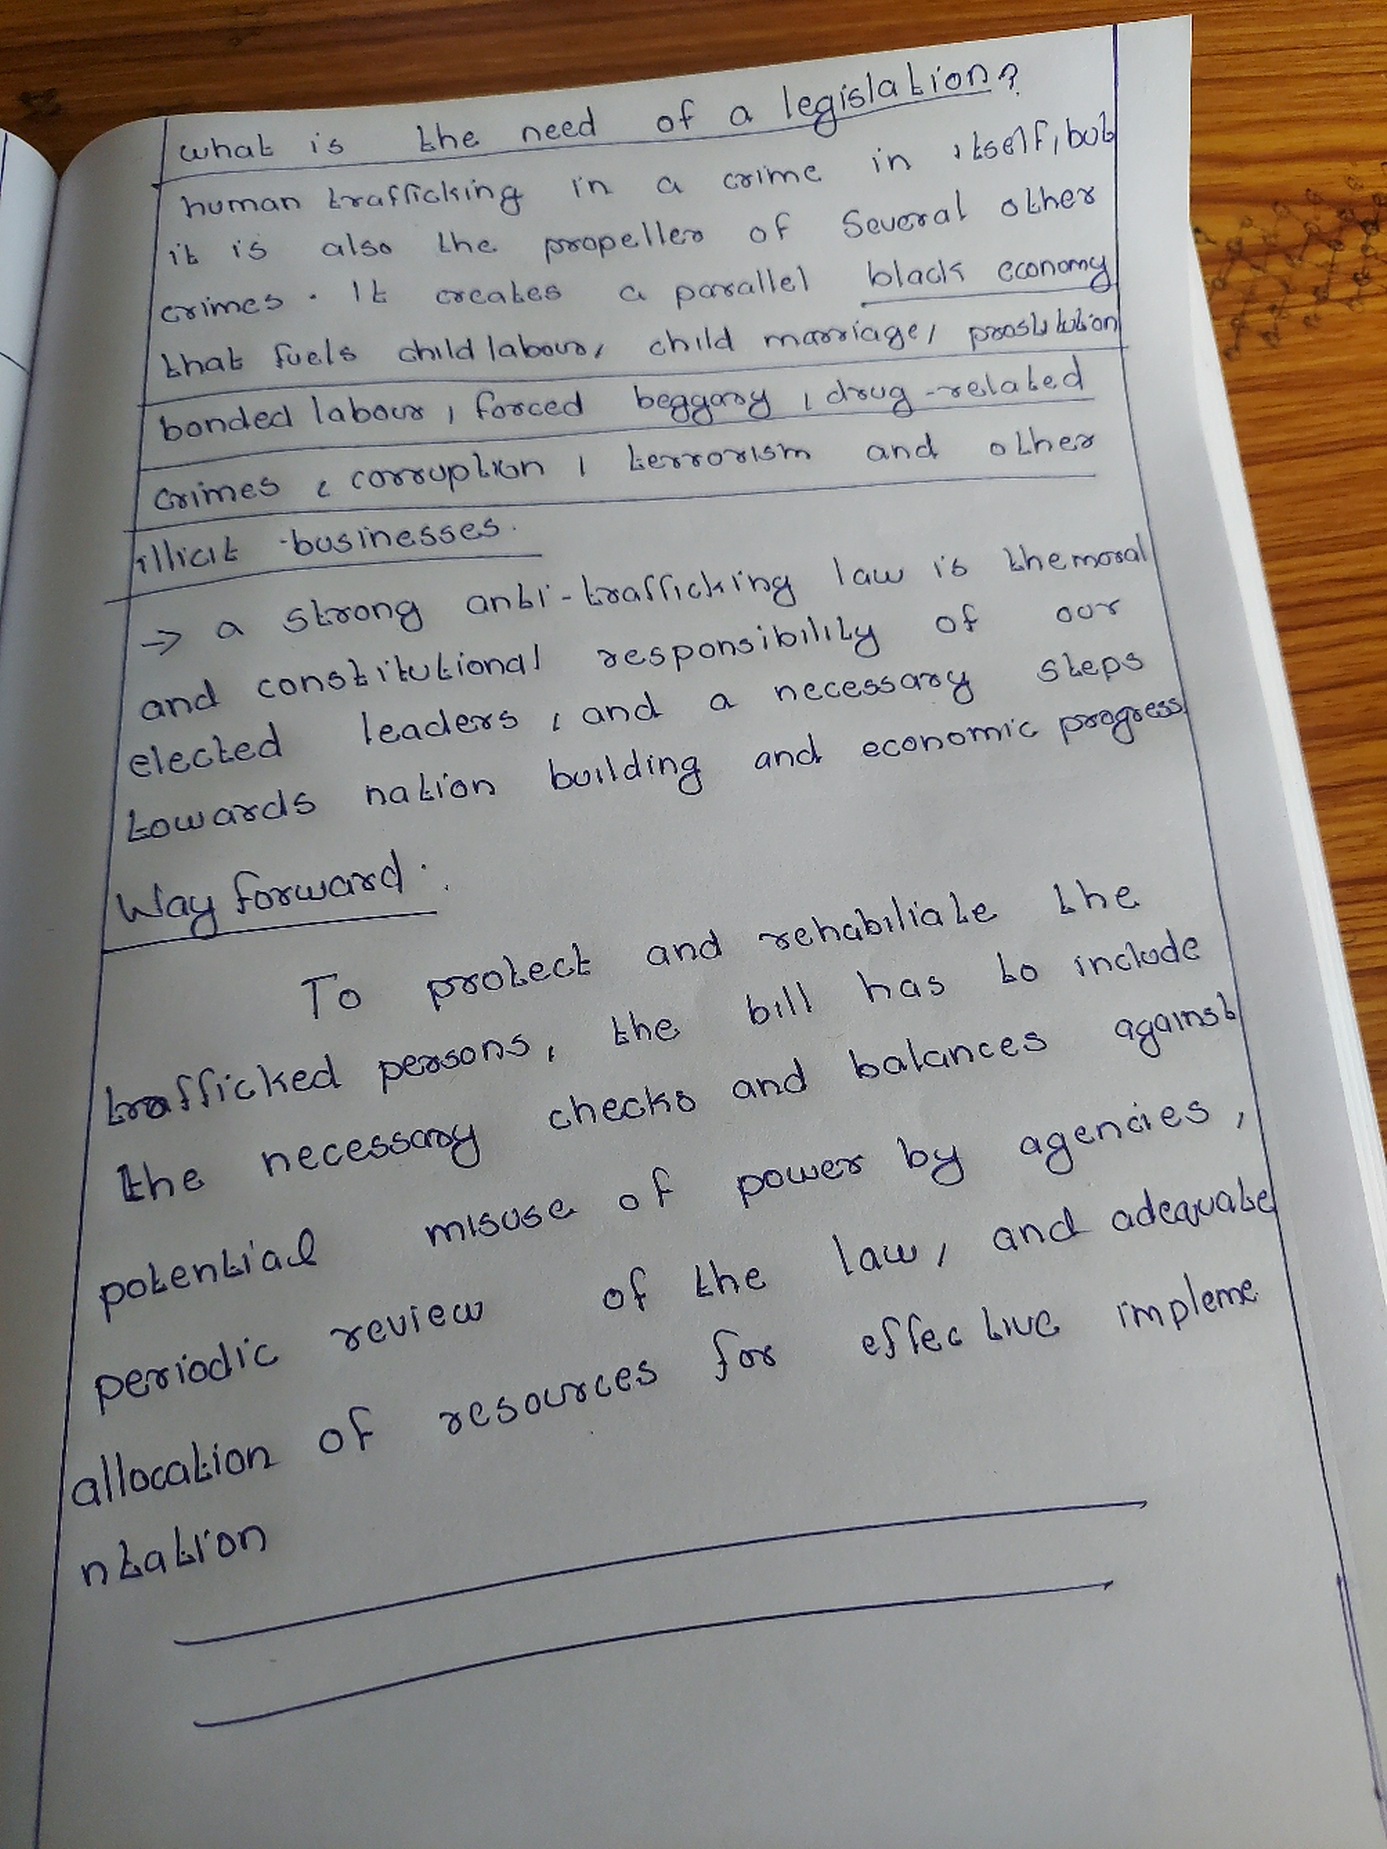 what is the need of a legislation?
human trafficking in a crime in itself, but
it is also the propeller of several other
crimes. It creates a parallel black economy
that fuels child labour, child marriage, prostitution
bonded labour, forced beggary, drug-related
crimes, corruption, terrorism and other
illicit businesses.
→ a strong anti-trafficking law is the moral
and constitutional responsibility of our
elected leaders, and a necessary steps
towards nation building and economic progress.
Way forward:
To protect and rehabiliate the
trafficked persons, the bill has to include
the necessary checks and balances against
potential misuse of power by agencies,
periodic review of the law, and adequate
allocation of resources for effective impleme
ntation